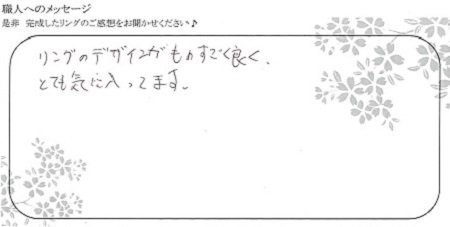 職人へのメッセージ
是非 完成したリングのご感想をお聞かせください♪
リングのデザインがものすごく良く、
とても気に入ってます。